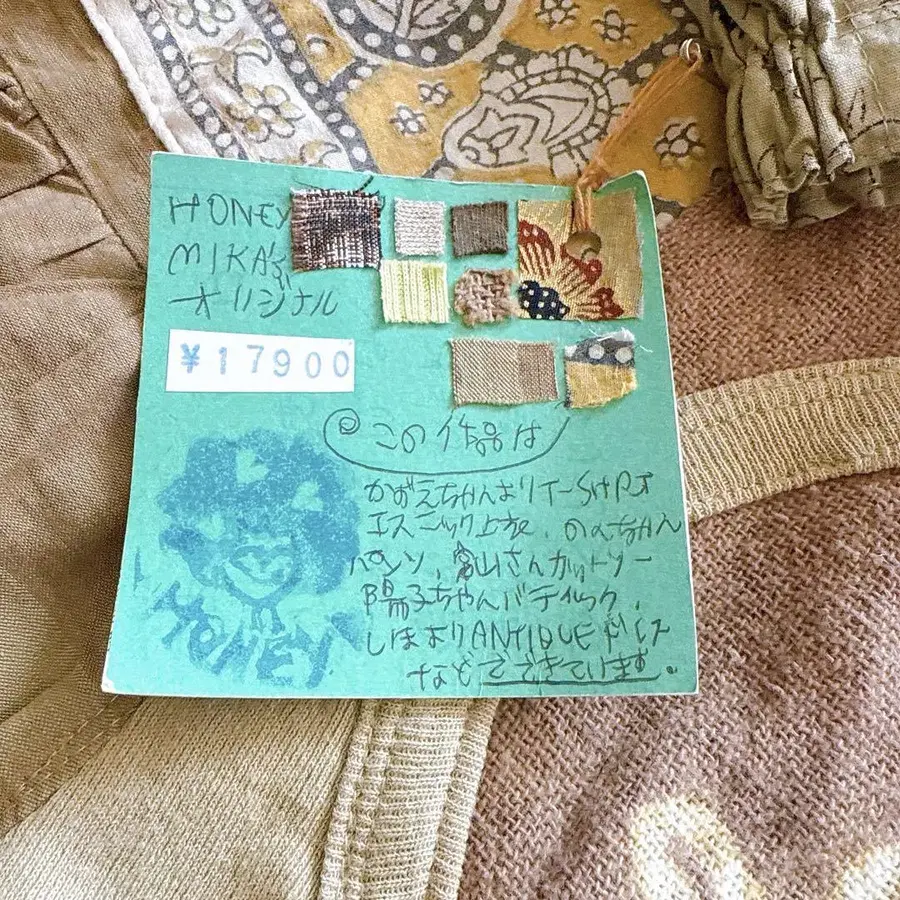 HONEY
MIKA'S
オリジナル
¥17900
この作品は
かずえちゃんよりT-SHRT
エスニック上衣、のんちゃん
パンツ、富山さんカットソー
陽子ちゃんバティック、
しほよりANTIQUEドレス
などでできています。
HONEY